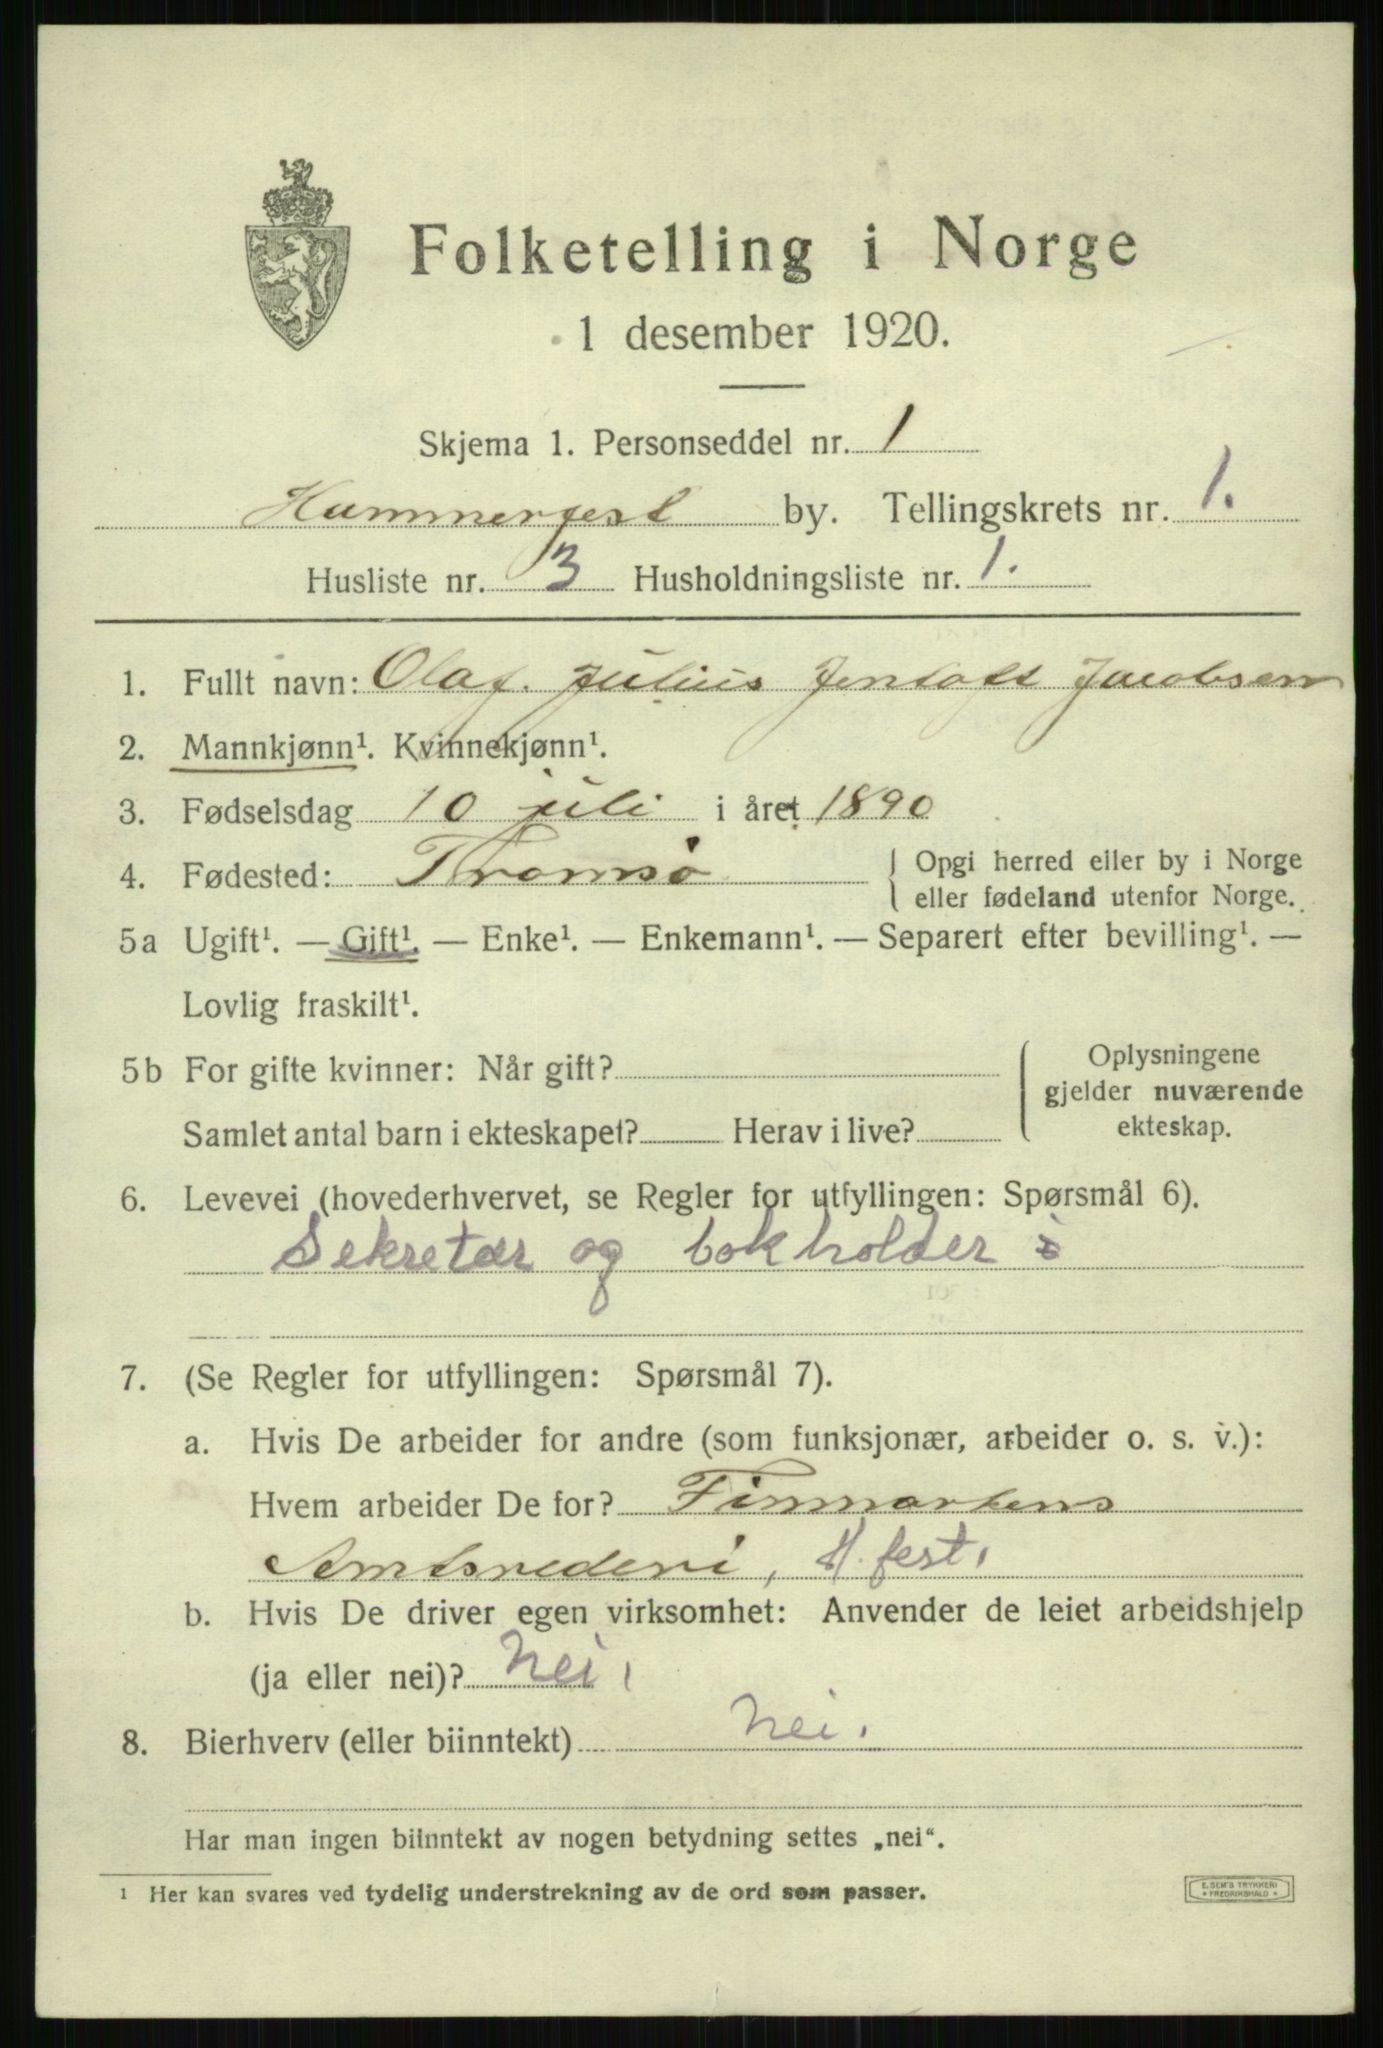 Folketelling i Norge
1 desember 1920.
Skjema 1. Personseddel nr. 1
Hammerfest by. Tellingskrets nr. 1.
Husliste nr. 3 Husholdningsliste nr. 1.
1. Fullt navn: Olaf. Julius Jentoft Jacobsen
2. Mannkjønn¹. Kvinnekjønn¹.
3. Fødselsdag 10 juli i året 1890
4. Fødested: Tromsø { Opgi herred eller by i Norge
eller fødeland utenfor Norge.
5a Ugift¹. — Gift¹. — Enke¹. — Enkemann¹. — Separert efter bevilling¹. —
Lovlig fraskilt¹.
5b For gifte kvinner: Når gift? { Oplysningene
gjelder nuværende
Samlet antal barn i ekteskapet? Herav i live? ekteskap.
6. Levevei (hovederhvervet, se Regler for utfyllingen: Spørsmål 6).
Sekretær og bokholder i
7. (Se Regler for utfyllingen: Spørsmål 7).
a. Hvis De arbeider for andre (som funksjonær, arbeider o. s. v.):
Hvem arbeider De for? Finmarkens
Amtsrederi, H.fest.
b. Hvis De driver egen virksomhet: Anvender de leiet arbeidshjelp
(ja eller nei)? Nei.
8. Bierhverv (eller biinntekt) Nei.
Har man ingen biinntekt av nogen betydning settes „nei“.
¹ Her kan svares ved tydelig understrekning av de ord som passer.
E. SEM'S TRYKKERI
FREDRIKSHALD